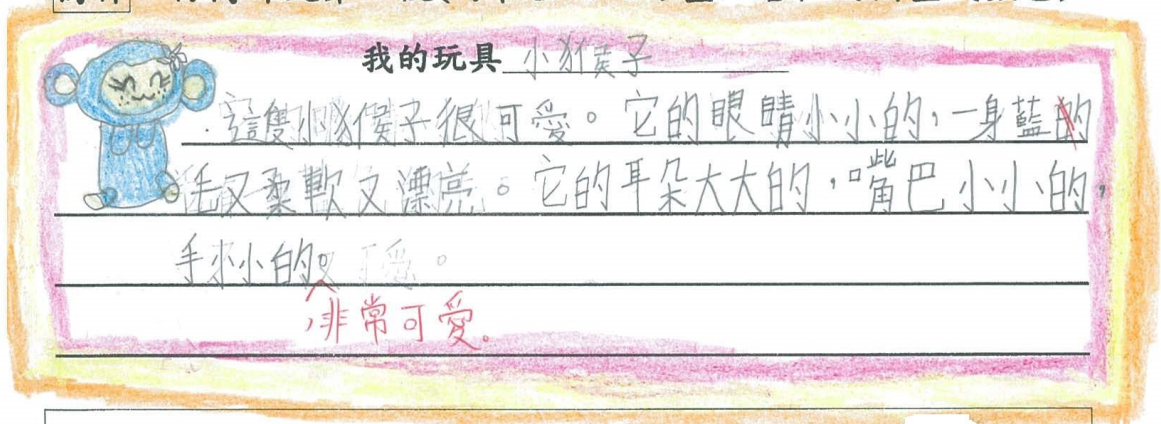 我的玩具 小猴子
這隻小猴子很可愛。它的眼睛小小的,一身藍的
毛又柔軟又漂亮。它的耳朵大大的,嘴巴小小的,
手小小的。
,非常可愛。